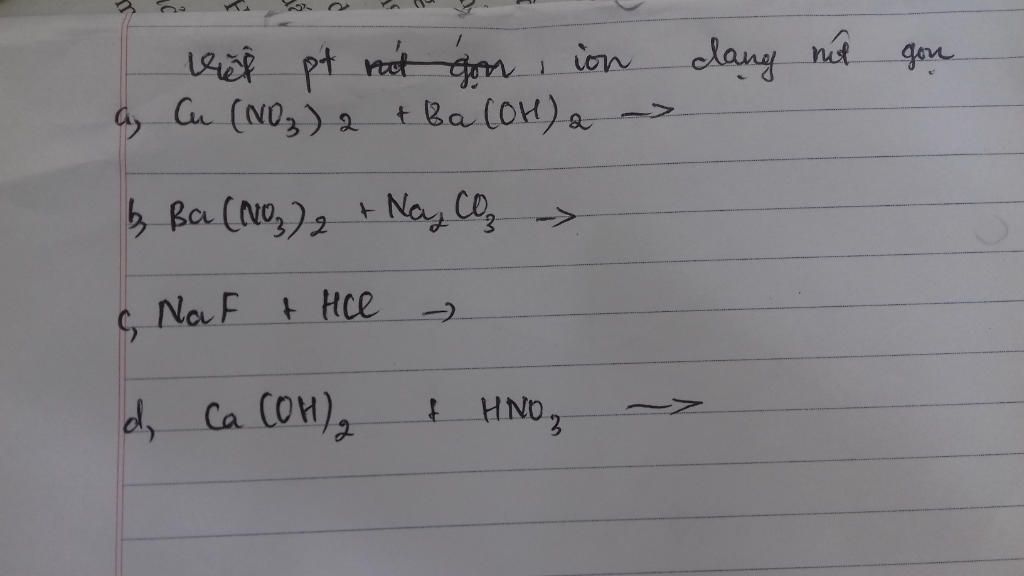 viết pt rút gọn, ion dạng rút gọn
a, Cu(NO3)2 + Ba(OH)2 →
b, Ba(NO3)2 + Na2CO3 →
c, NaF + HCl →
d, Ca(OH)2 + HNO3 →